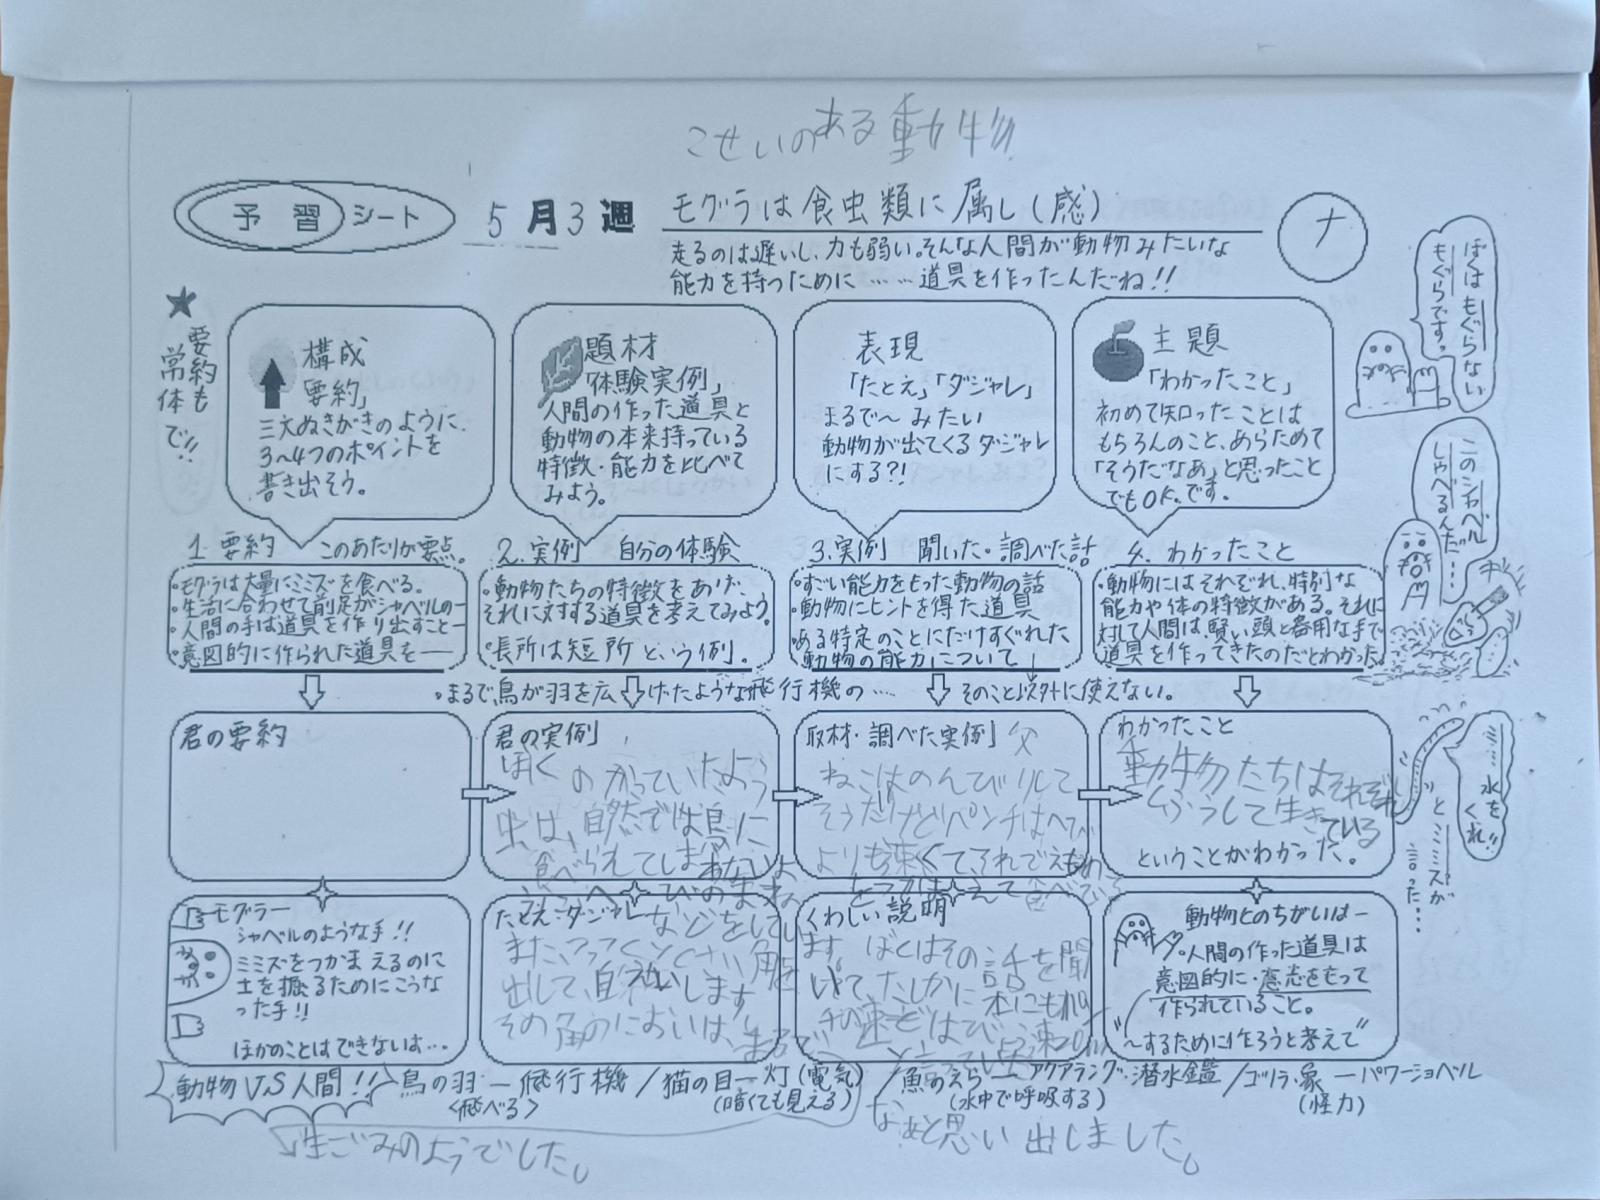 こせいのある動物
予習シート
5月3週
モグラは食虫類に属し(感)
ナ
走るのは遅いし、力も弱い。そんな人間が動物みたいな
能力を持つために……道具を作ったんだね!!
★要約も
常体で!!
構成
要約」
三文ぬきがきのように、
3〜4つのポイントを
書き出そう。
題材
「体験実例」
人間の作った道具と
動物の本来持っている
特徴・能力を比べて
みよう。
表現
「たとえ」「ダジャレ」
まるで〜みたい
動物が出てくるダジャレ
にする?!
主題
「わかったこと」
初めて知ったことは
もちろんのこと、あらためて
「そうだなあ」と思ったこと
でもOK。です。
ぼくはもぐらない
もぐらです。
このシャベル
しゃべるんだ…
1. 要約 このあたりが要点。
・モグラは大量にミミズを食べる。
・生活に合わせて前足がシャベルの―
・人間の手は道具を作り出すこと―
・意図的に作られた道具を――
2. 実例 自分の体験
・動物たちの特徴をあげ、
それに対する道具を考えてみよう。
・長所は短所という例。
3. 実例 聞いた・調べた話
・すごい能力をもった動物の話
・動物にヒントを得た道具
・ある特定のことにだけすぐれた
動物の能力について
4. わかったこと
・動物にはそれぞれ、特別な
能力や体の特徴がある。それに
対して人間は、賢い頭と器用な手で
道具を作ってきたのだとわかった。
・まるで鳥が羽を広げたような飛行機の……
そのこと以外に使えない。
君の要約
君の実例
ぼくのかっていたようう
虫は、自然では鳥に
食べられてしまわないよ
へびのまね
などをしてい
また、つつくとくさい角を
出して、自
します
その角のにおいは、まるで、
生ごみのようでした。
取材・調べた実例」父
ねこはのんびりして
そうだけどパンチはへび
よりも速くてそれでえもの
をつかまえて食べている
ます。ぼくはその話を聞
いて、たしかに本にも
なぁと思い出しました。
わかったこと
動物たちはそれぞれ
くふうして生きている
ということがわかった。
ミミズ 水をくれ!!
とミミズが
言った…
モグラー
シャベルのような手!!
ミミズをつかまえるのに
土を掘るためにこうな
った手!!
ほかのことはできないは…
たとえ・ダジャレ
くわしい説明
動物とのちがいは―
人間の作った道具は
意図的に・意志をもって
作られていること。
"〜するために作ろうと考えて"
動物V.S人間!!
鳥の羽―飛行機/猫の目―灯(電気)/魚のえら―アクアラング・潜水鑑/ゴリラ・象―パワーショベル
<飛べる>
(暗くても見える)
(水中で呼吸する)
(怪力)